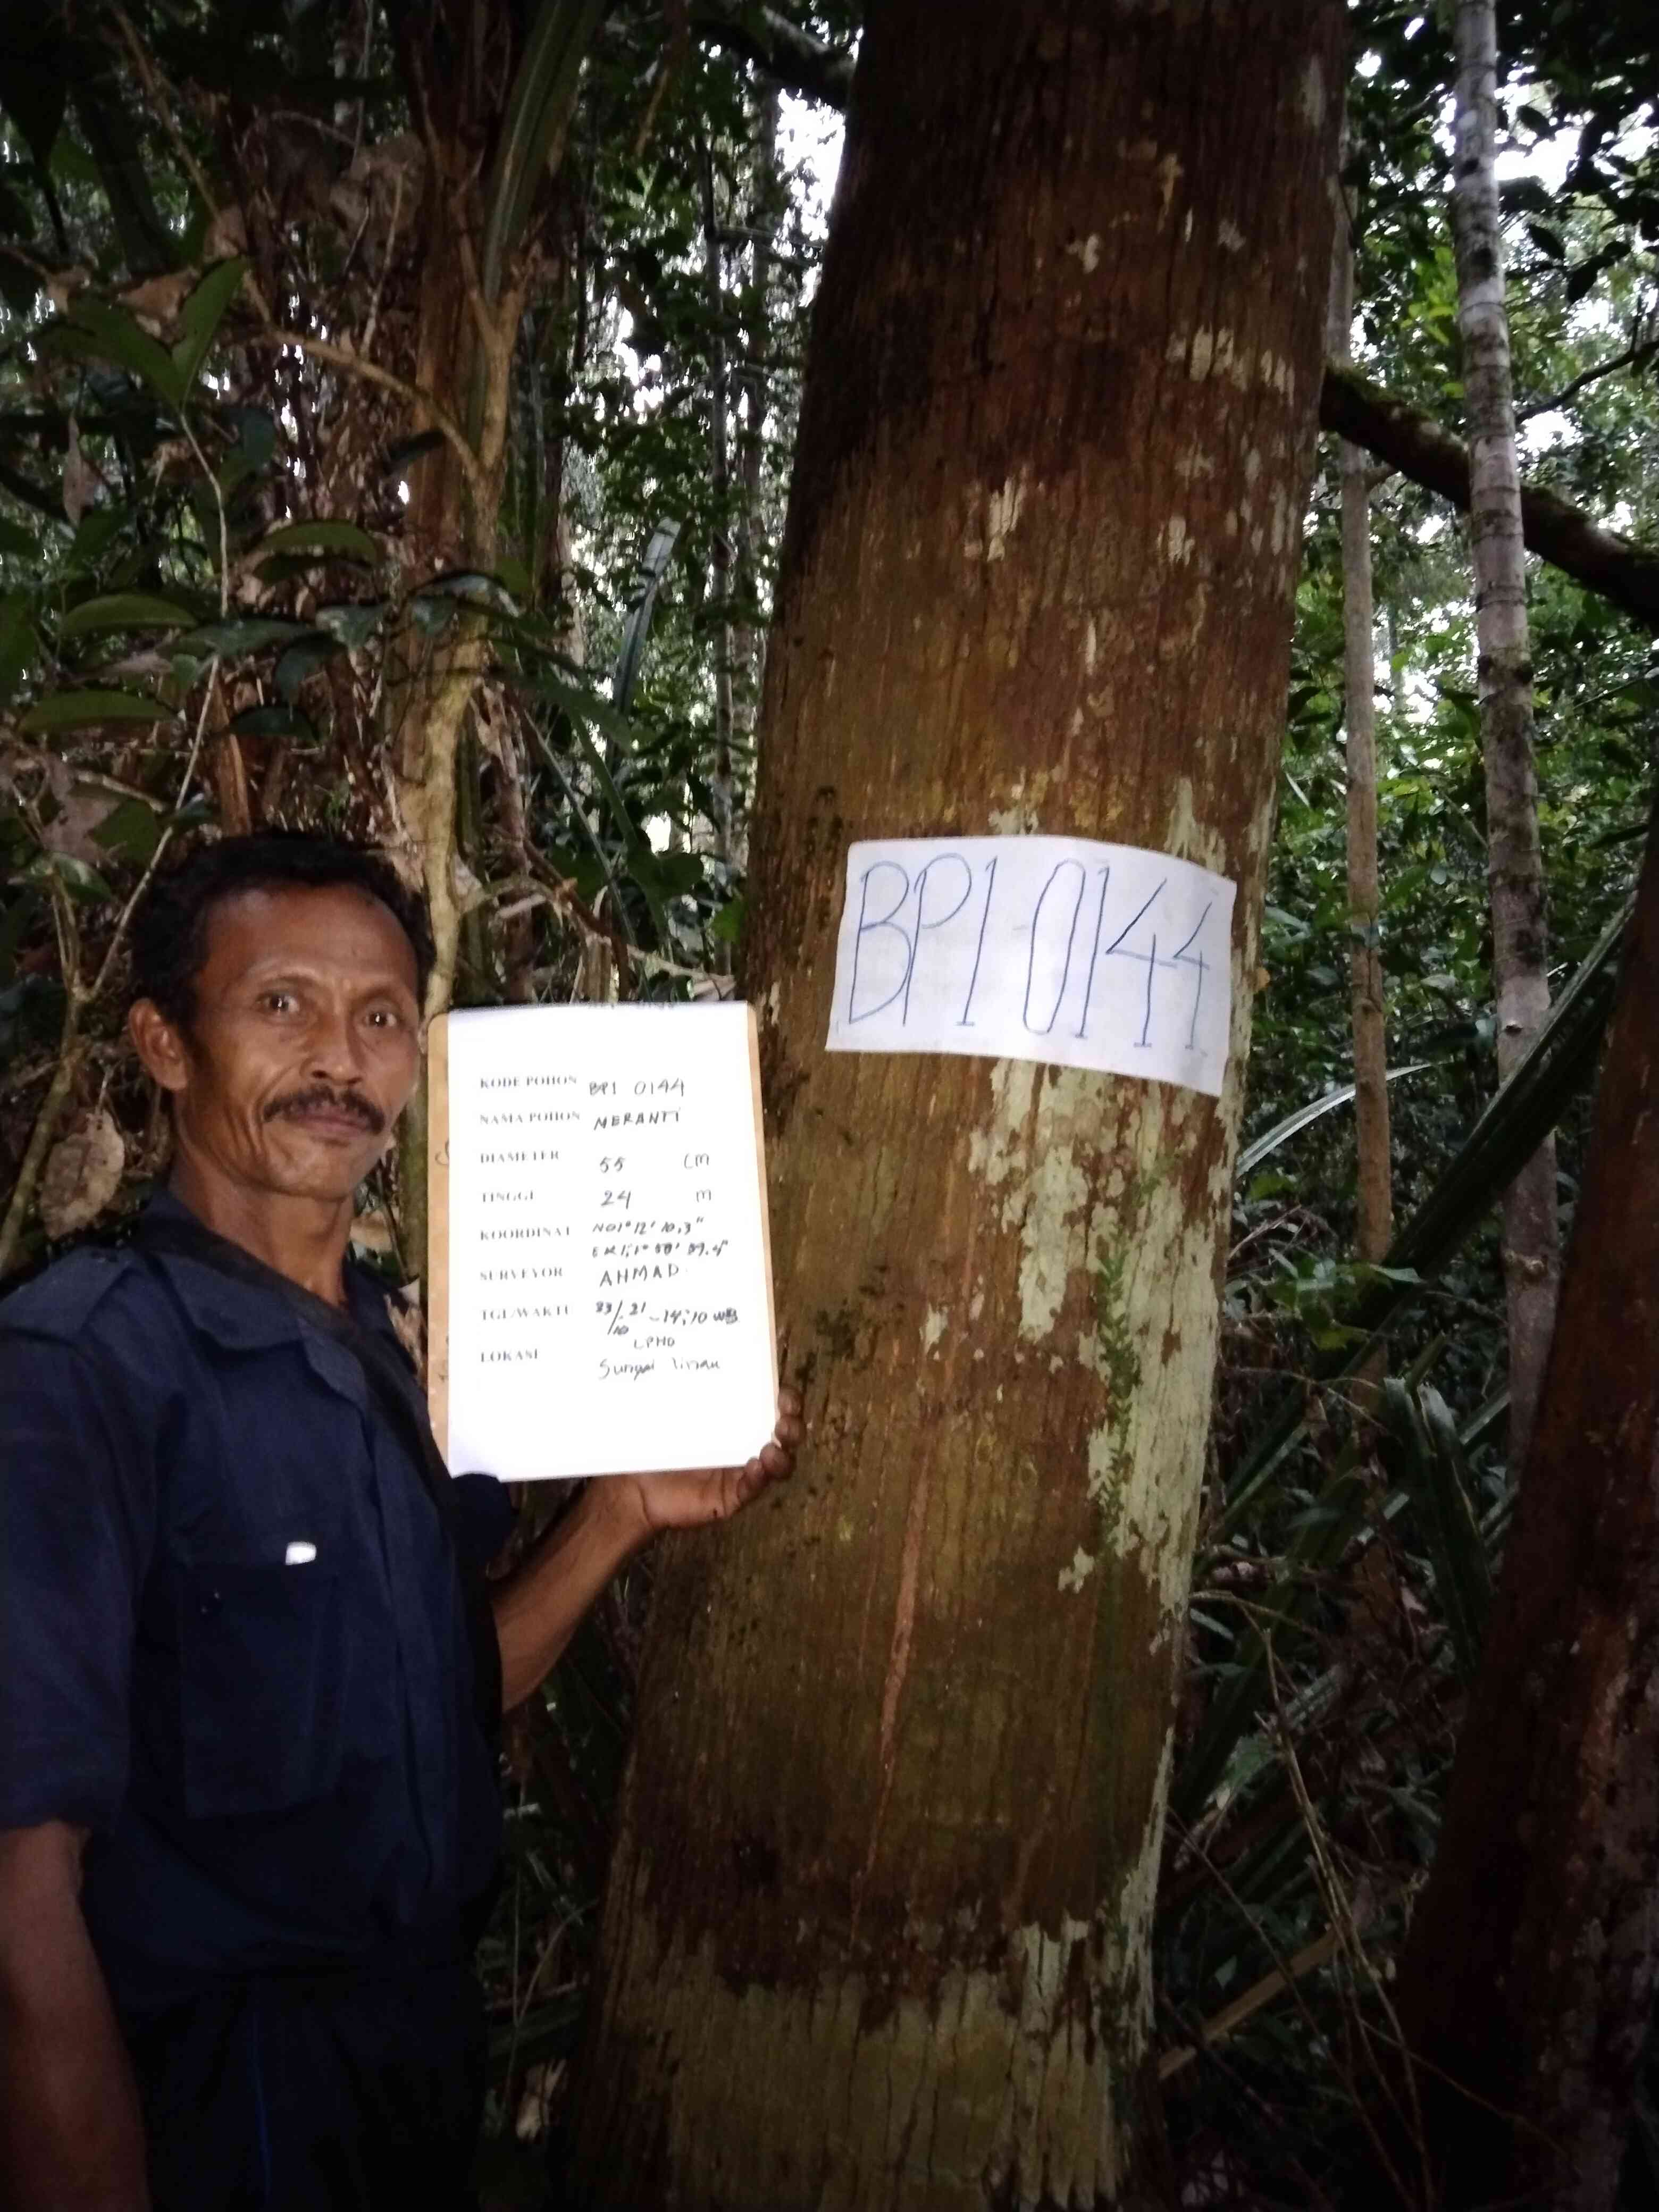 BP1 0144
KODE POHON BP1 0144
NAMA POHON MERANTI
DIAMETER 55 CM
TINGGI 24 m
KOORDINAT N01°12' 10,3"
SURVEYOR AHMAD
TGL/WAKTU 23/10 21 - 14:10 WIB
LPHD
LOKASI Sungai linau